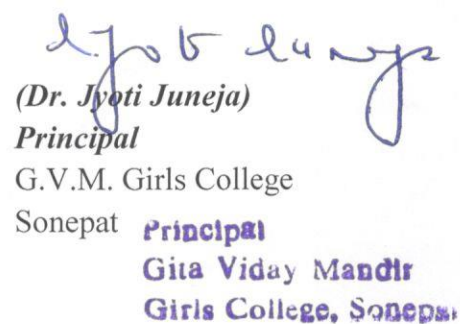 (Dr. Jyoti Juneja)
Principal
G.V.M. Girls College
Sonepat
Principal
Gita Viday Mandir
Girls College, Sonepat